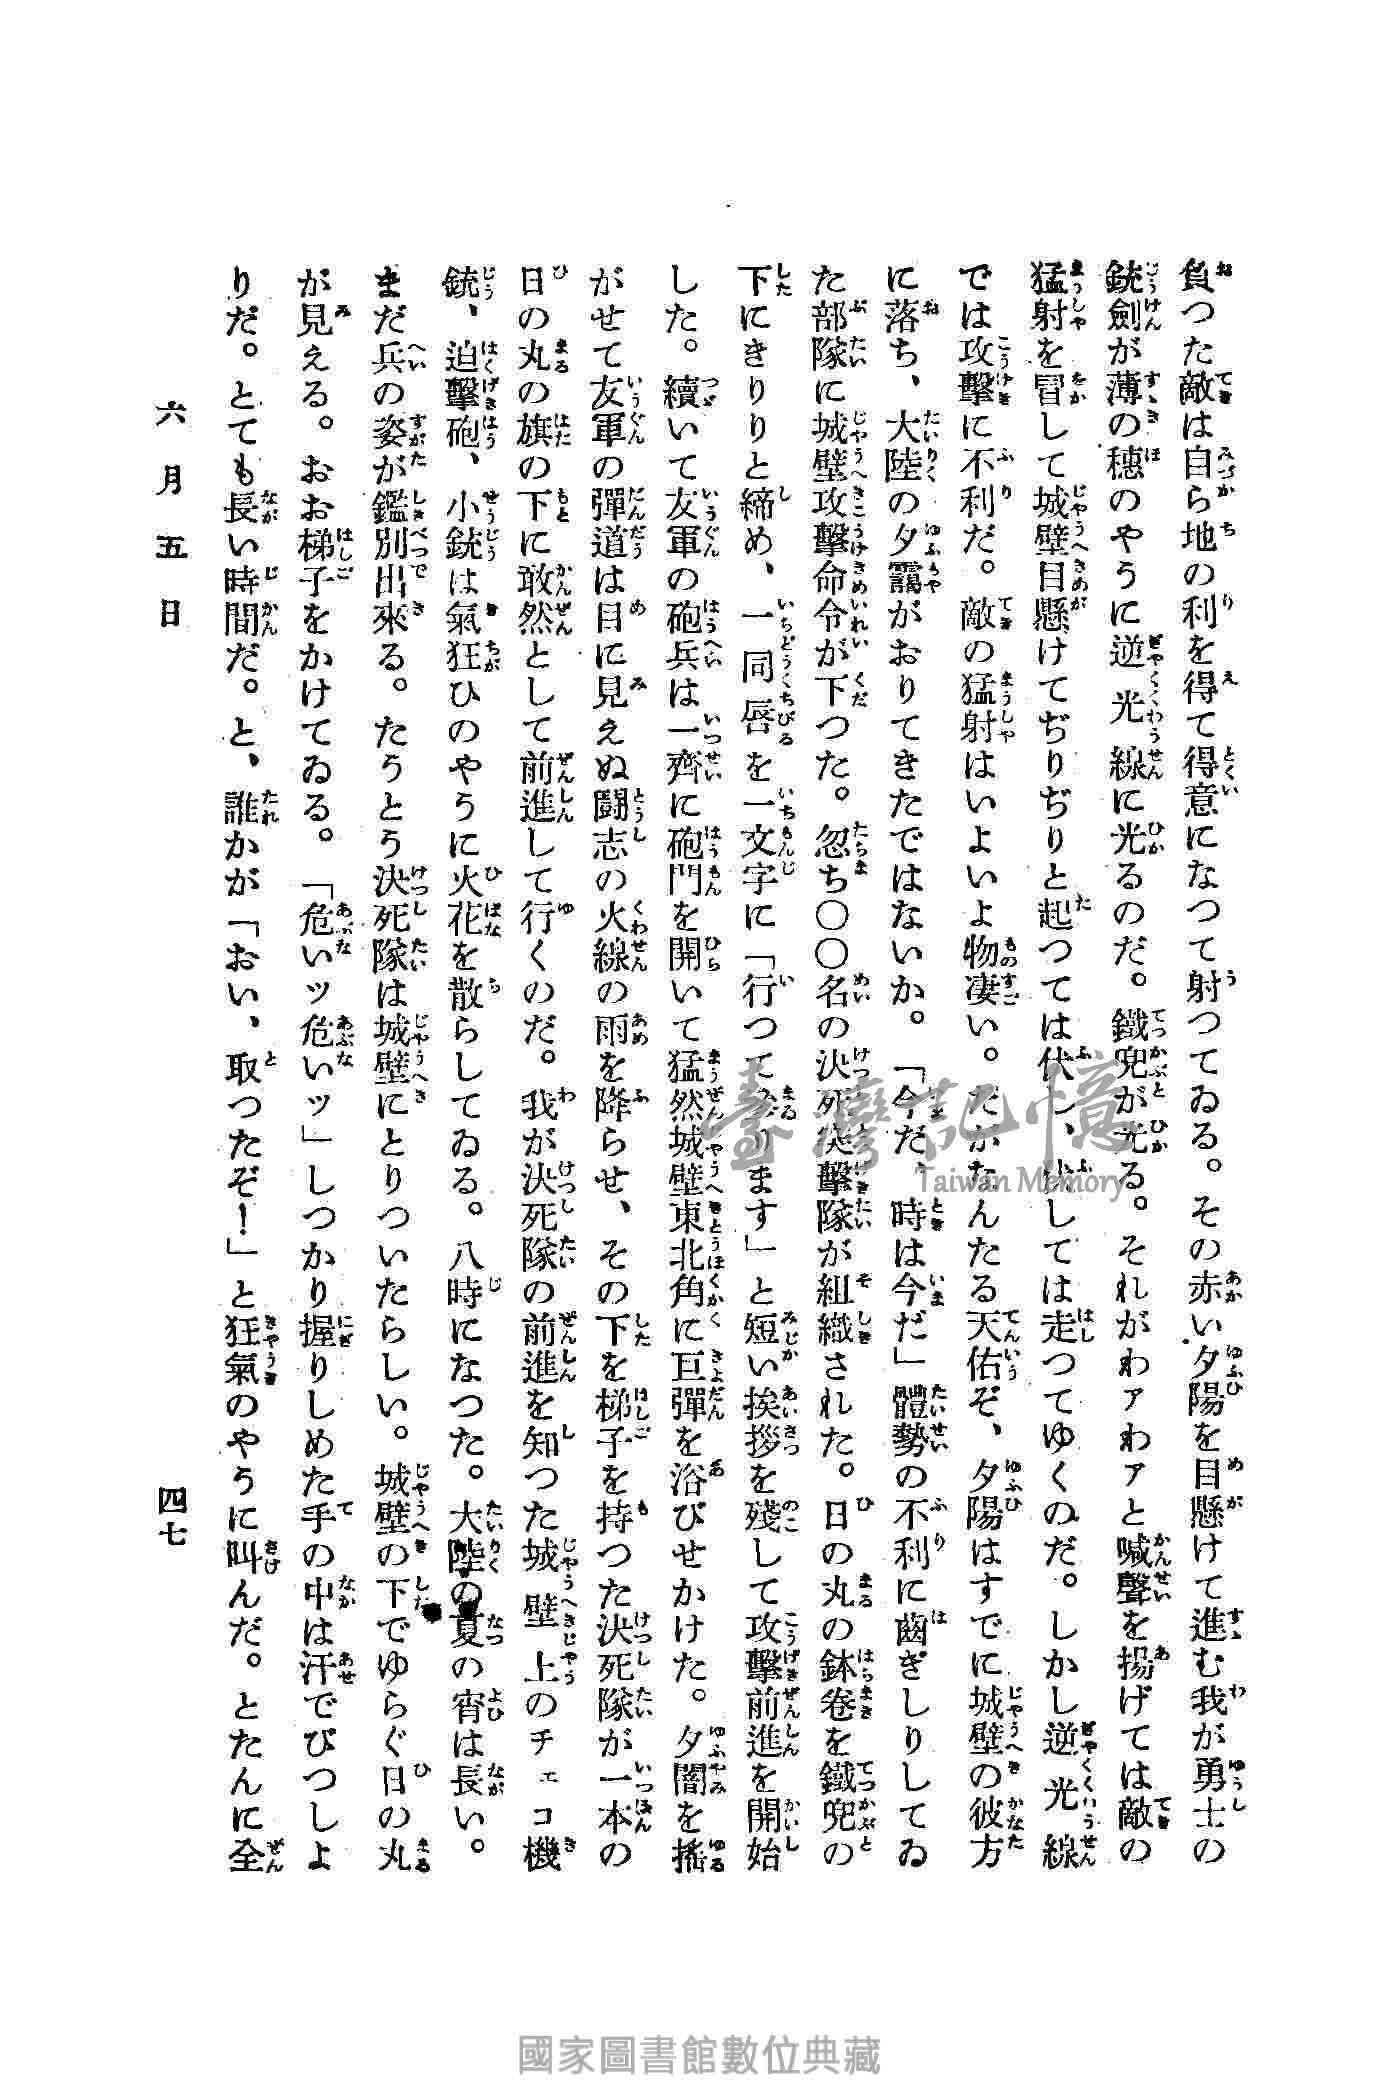 負つた敵は自ら地の利を得て得意になつて射つてゐる。その赤い夕陽を目懸けて進む我が勇士の
銃劍が薄の穗のやうに逆光線に光るのだ。鐵兜が光る。それがわァわァと喊聲を揚げては敵の
猛射を冒して城壁目懸けてぢりぢりと起つては伏し、伏しては走つてゆくのだ。しかし逆光線
では攻擊に不利だ。敵の猛射はいよいよ物凄い。だがなんたる天佑ぞ、夕陽はすでに城壁の彼方
に落ち、大陸の夕靄がおりてきたではないか。「今だ、時は今だ」體勢の不利に齒ぎしりしてゐ
た部隊に城壁攻擊命令が下つた。忽ち〇〇名の決死突擊隊が組織された。日の丸の鉢卷を鐵兜の
下にきりりと締め、一同唇を一文字に「行つて參ります」と短い挨拶を殘して攻擊前進を開始
した。續いて友軍の砲兵は一齊に砲門を開いて猛然城壁東北角に巨彈を浴びせかけた。夕闇を搖
がせて友軍の彈道は目に見えぬ鬪志の火線の雨を降らせ、その下を梯子を持つた決死隊が一本の
日の丸の旗の下に敢然として前進して行くのだ。我が決死隊の前進を知つた城壁上のチェコ機
銃、迫擊砲、小銃は氣狂ひのやうに火花を散らしてゐる。八時になつた。大陸の夏の宵は長い。
まだ兵の姿が鑑別出來る。たうとう決死隊は城壁にとりついたらしい。城壁の下でゆらぐ日の丸
が見える。おお梯子をかけてゐる。「危いッ危いッ」しつかり握りしめた手の中は汗でびつしよ
りだ。とても長い時間だ。と、誰かが「おい、取つたぞ！」と狂氣のやうに叫んだ。とたんに全
六月五日
四七
臺灣記憶
Taiwan Memory
國家圖書館數位典藏